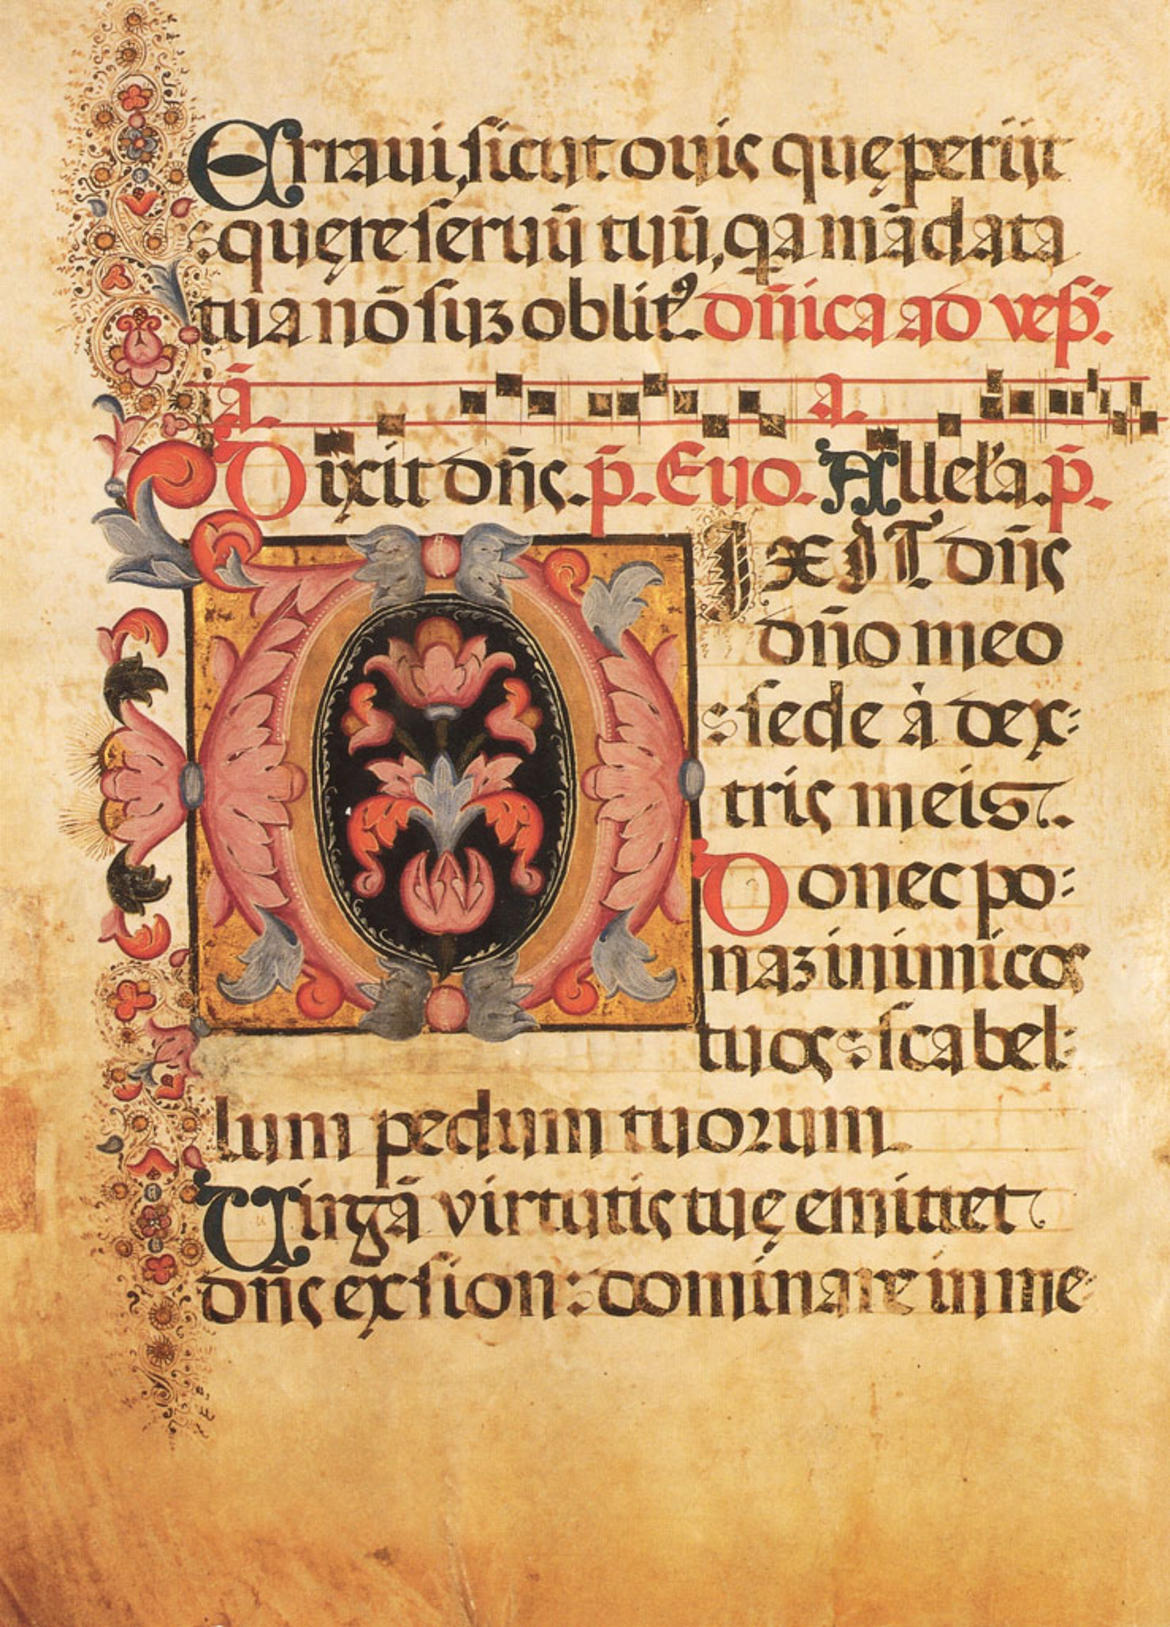 Erraui, sicut ouis quę perijt
: quęre seruū tuū, qa mādata
tua nō suꝫ oblitꝰ dn̄ica ad vesp̄.
ā. a.
Dixit dn̄s. p̄. Euo. Allel'a. p̄.
DIXIT dn̄s
dn̄o meo
: sede à dex:
tris meis.
Donec po:
naꝫ inimicos
tuos : scabel:
lum pedum tuorum.
Uirgā virtutis tuę emittet
dn̄s ex sion : dominare in me